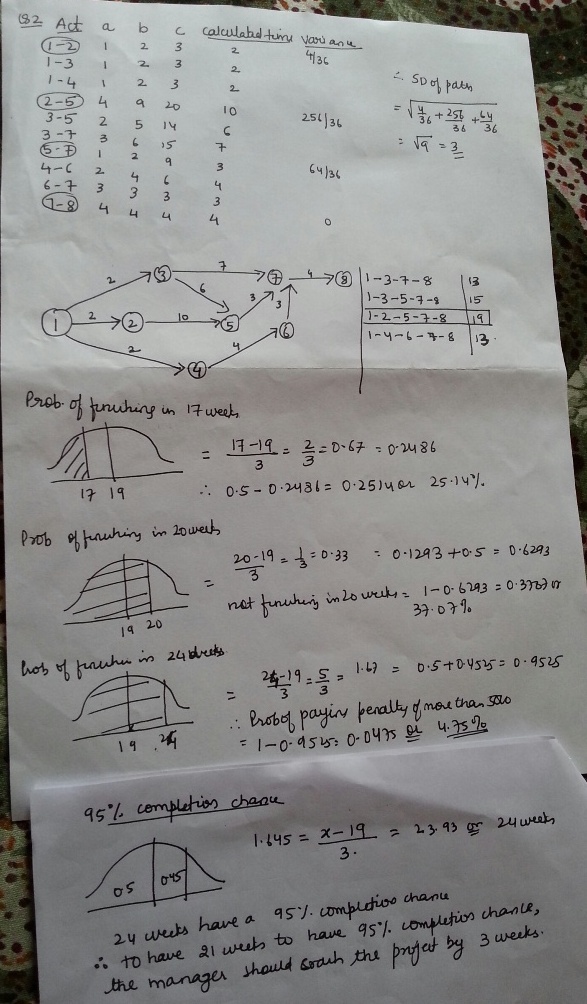 Q2 Act a b c calculated time variance
1-2 1 2 3 2 4/36
1-3 1 2 3 2
1-4 1 2 3 2
2-5 4 9 20 10 256/36
3-5 2 5 14 6
3-7 3 6 15 7
5-7 1 2 9 3 64/36
4-6 2 4 6 4
6-7 3 3 3 3
7-8 4 4 4 4 0
∴ SD of path
= √4/36 + 256/36 + 64/36
= √9 = 3
1 2 3 4 5 6 7 8
2 2 2 7 6 10 3 3 4 4
1-3-7-8 13
1-3-5-7-8 15
1-2-5-7-8 19
1-4-6-7-8 13.
Prob. of finishing in 17 weeks
17 19
= 17-19/3 = 2/3 = 0.67 = 0.2486
∴ 0.5 - 0.2486 = 0.2514 or 25.14%.
Prob of finishing in 20 weeks
19 20
= 20-19/3 = 1/3 = 0.33 = 0.1293 + 0.5 = 0.6293
not finishing in 20 weeks = 1-0.6293 = 0.3707 or
37.07%
Prob of finishin in 24 weeks
19 24
= 24-19/3 = 5/3 = 1.67 = 0.5+0.4525 = 0.9525
∴ Prob of paying penalty of more than 5000
= 1-0.9525 = 0.0475 or 4.75%
95% completion chance
0.5 0.45
1.645 = x-19/3. = 23.93 or 24 weeks
24 weeks have a 95% completion chance
∴ to have 21 weeks to have 95% completion chance,
the manager should crash the project by 3 weeks.